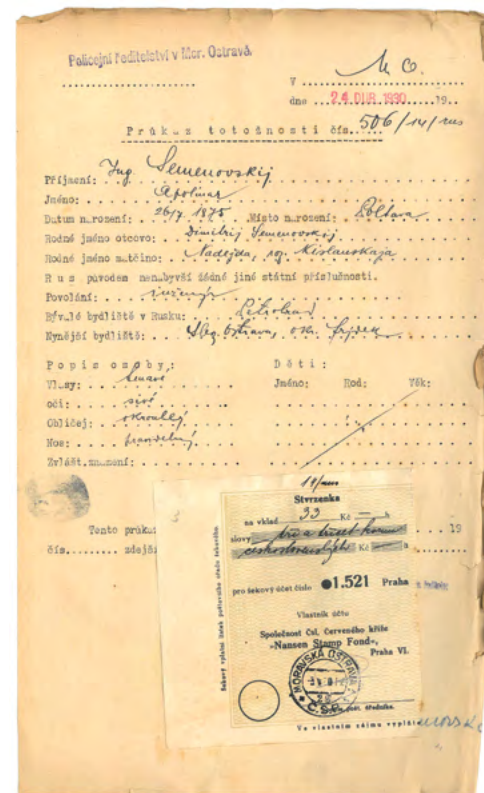 Policejní ředitelství v Mor. Ostravě.
V M. O.
dne 24.DUB.1930 19..
Průkaz totožnosti čís. 506/14/rus
Příjmení: Ing. Semenovskij
Jméno: Apolinar
Datum narození: 26/7 1875 Místo narození: Poltava
Rodné jméno otcovo: Dimitrij Semenovskij
Rodné jméno matčino: Nadejda, roz. Kislanskaja
Rus původem nenabyvší žádné jiné státní příslušnosti.
Povolání: inženýr
Bývalé bydliště v Rusku: Petrohrad
Nynější bydliště: Slez. Ostrava, okr. Frýdek
Popis osoby: Děti:
Vlasy: tmavé Jméno: Rod: Věk:
oči: sivé
Obličej: okrouhlý
Nos: pravidelný
Zvlášt.znamení:
14/rus
Stvrzenka
na vklad 33 Kč — h
slovy tři a třicet korun
československých Kč — h
Tento průkaz 19
čís. zdejší
pro šekový účet číslo 1.521 Praha
Vlastník účtu
Společnost Čsl. Červeného kříže
»Nansen Stamp Fond«,
Praha VI.
MORAVSKÁ OSTRAVA
Č.S.P.
úředníka.
Ve vlastním zájmu
Šekový vplatní lístek poštovního úřadu šekového.